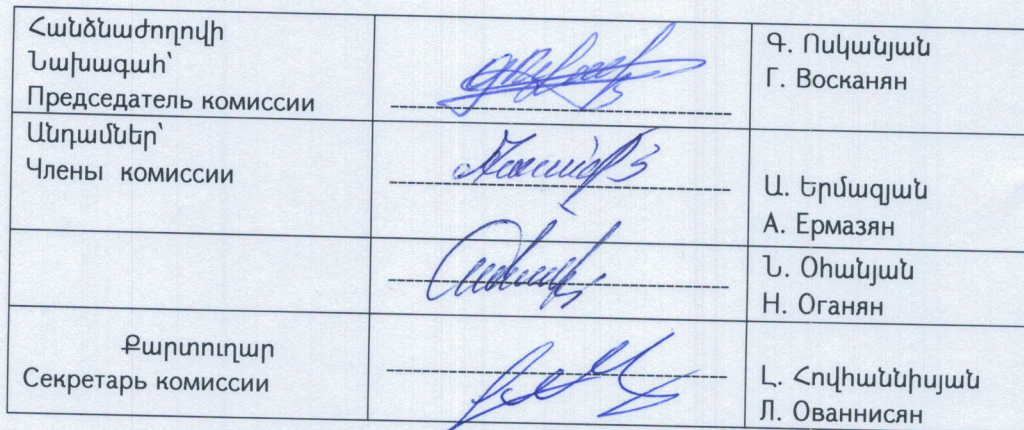 Հանձնաժողովի
Նախագահ՝
Председатель комиссии
Գ. Ոսկանյան
Г. Восканян
Անդամներ՝
Члены комиссии
Ա. Երմազյան
А. Ермазян
Ն. Օհանյան
Н. Оганян
Քարտուղար
Секретарь комиссии
Լ. Հովհաննիսյան
Л. Ованнисян